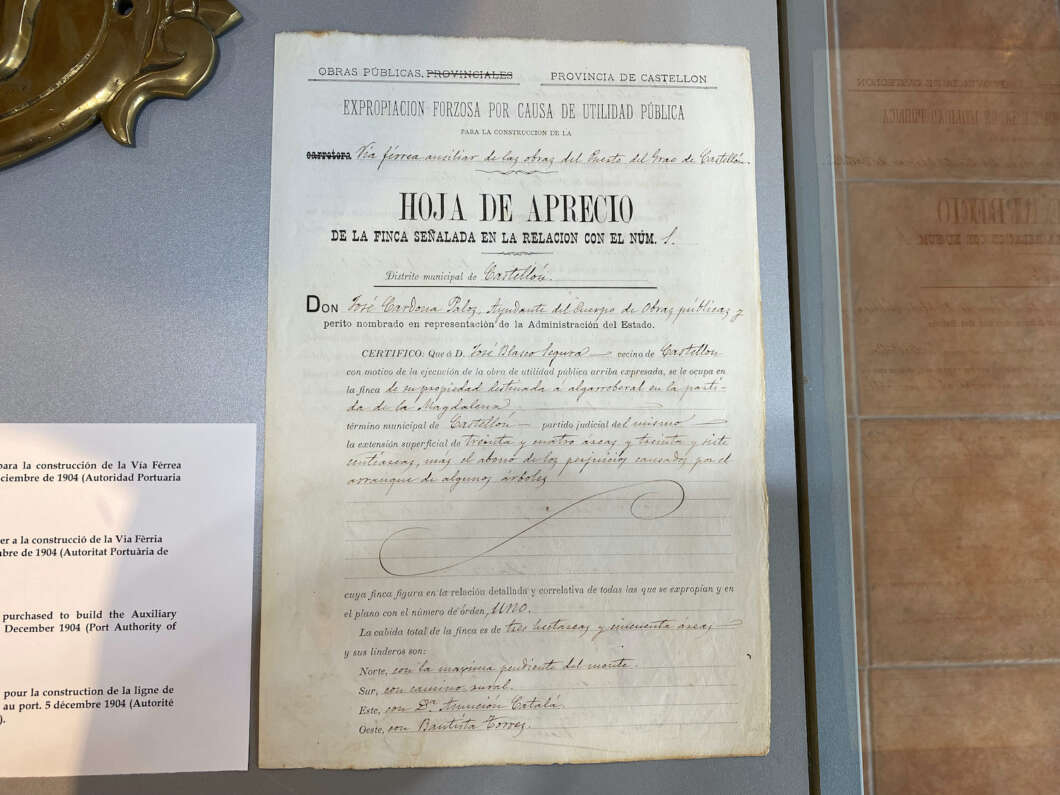 OBRAS PÚBLICAS. PROVINCIALES PROVINCIA DE CASTELLON
EXPROPIACION FORZOSA POR CAUSA DE UTILIDAD PÚBLICA
PARA LA CONSTRUCCION DE LA
carretera Vía férrea auxiliar de las obras del Puerto del Grao de Castellón.
HOJA DE APRECIO
DE LA FINCA SEÑALADA EN LA RELACION CON EL NÚM. 1.
Distrito municipal de Castellón.
DON José Cardona Palos, Ayudante del Cuerpo de Obras públicas y
perito nombrado en representación de la Administración del Estado.
CERTIFICO: Que á D. José Blasco Segura vecino de Castellon
con motivo de la ejecución de la obra de utilidad pública arriba expresada, se le ocupa en
la finca de su propiedad destinada a algarroberal en la parti-
da de la Magdalena,
término municipal de Castellón, partido judicial del mismo
la extensión superficial de treinta y cuatro áreas y treinta y siete
centiareas, mas el abono de los perjuicios causados por el
arranque de algunos árboles
cuya finca figura en la relación detallada y correlativa de todas las que se expropian y en
el plano con el número de órden, UNO.
La cabida total de la finca es de tres hectareas y cincuenta áreas
y sus linderos son:
Norte, con la maxima pendiente del monte.
Sur, con camino rural.
Este, con Dª Asunción Catalá.
Oeste, con Bautista Torres.
para la construcción de la Vía Férrea
ciembre de 1904 (Autoridad Portuaria
er a la construcció de la Vía Fèrria
bre de 1904 (Autoritat Portuària de
purchased to build the Auxiliary
December 1904 (Port Authority of
pour la construction de la ligne de
au port. 5 décembre 1904 (Autorité
).